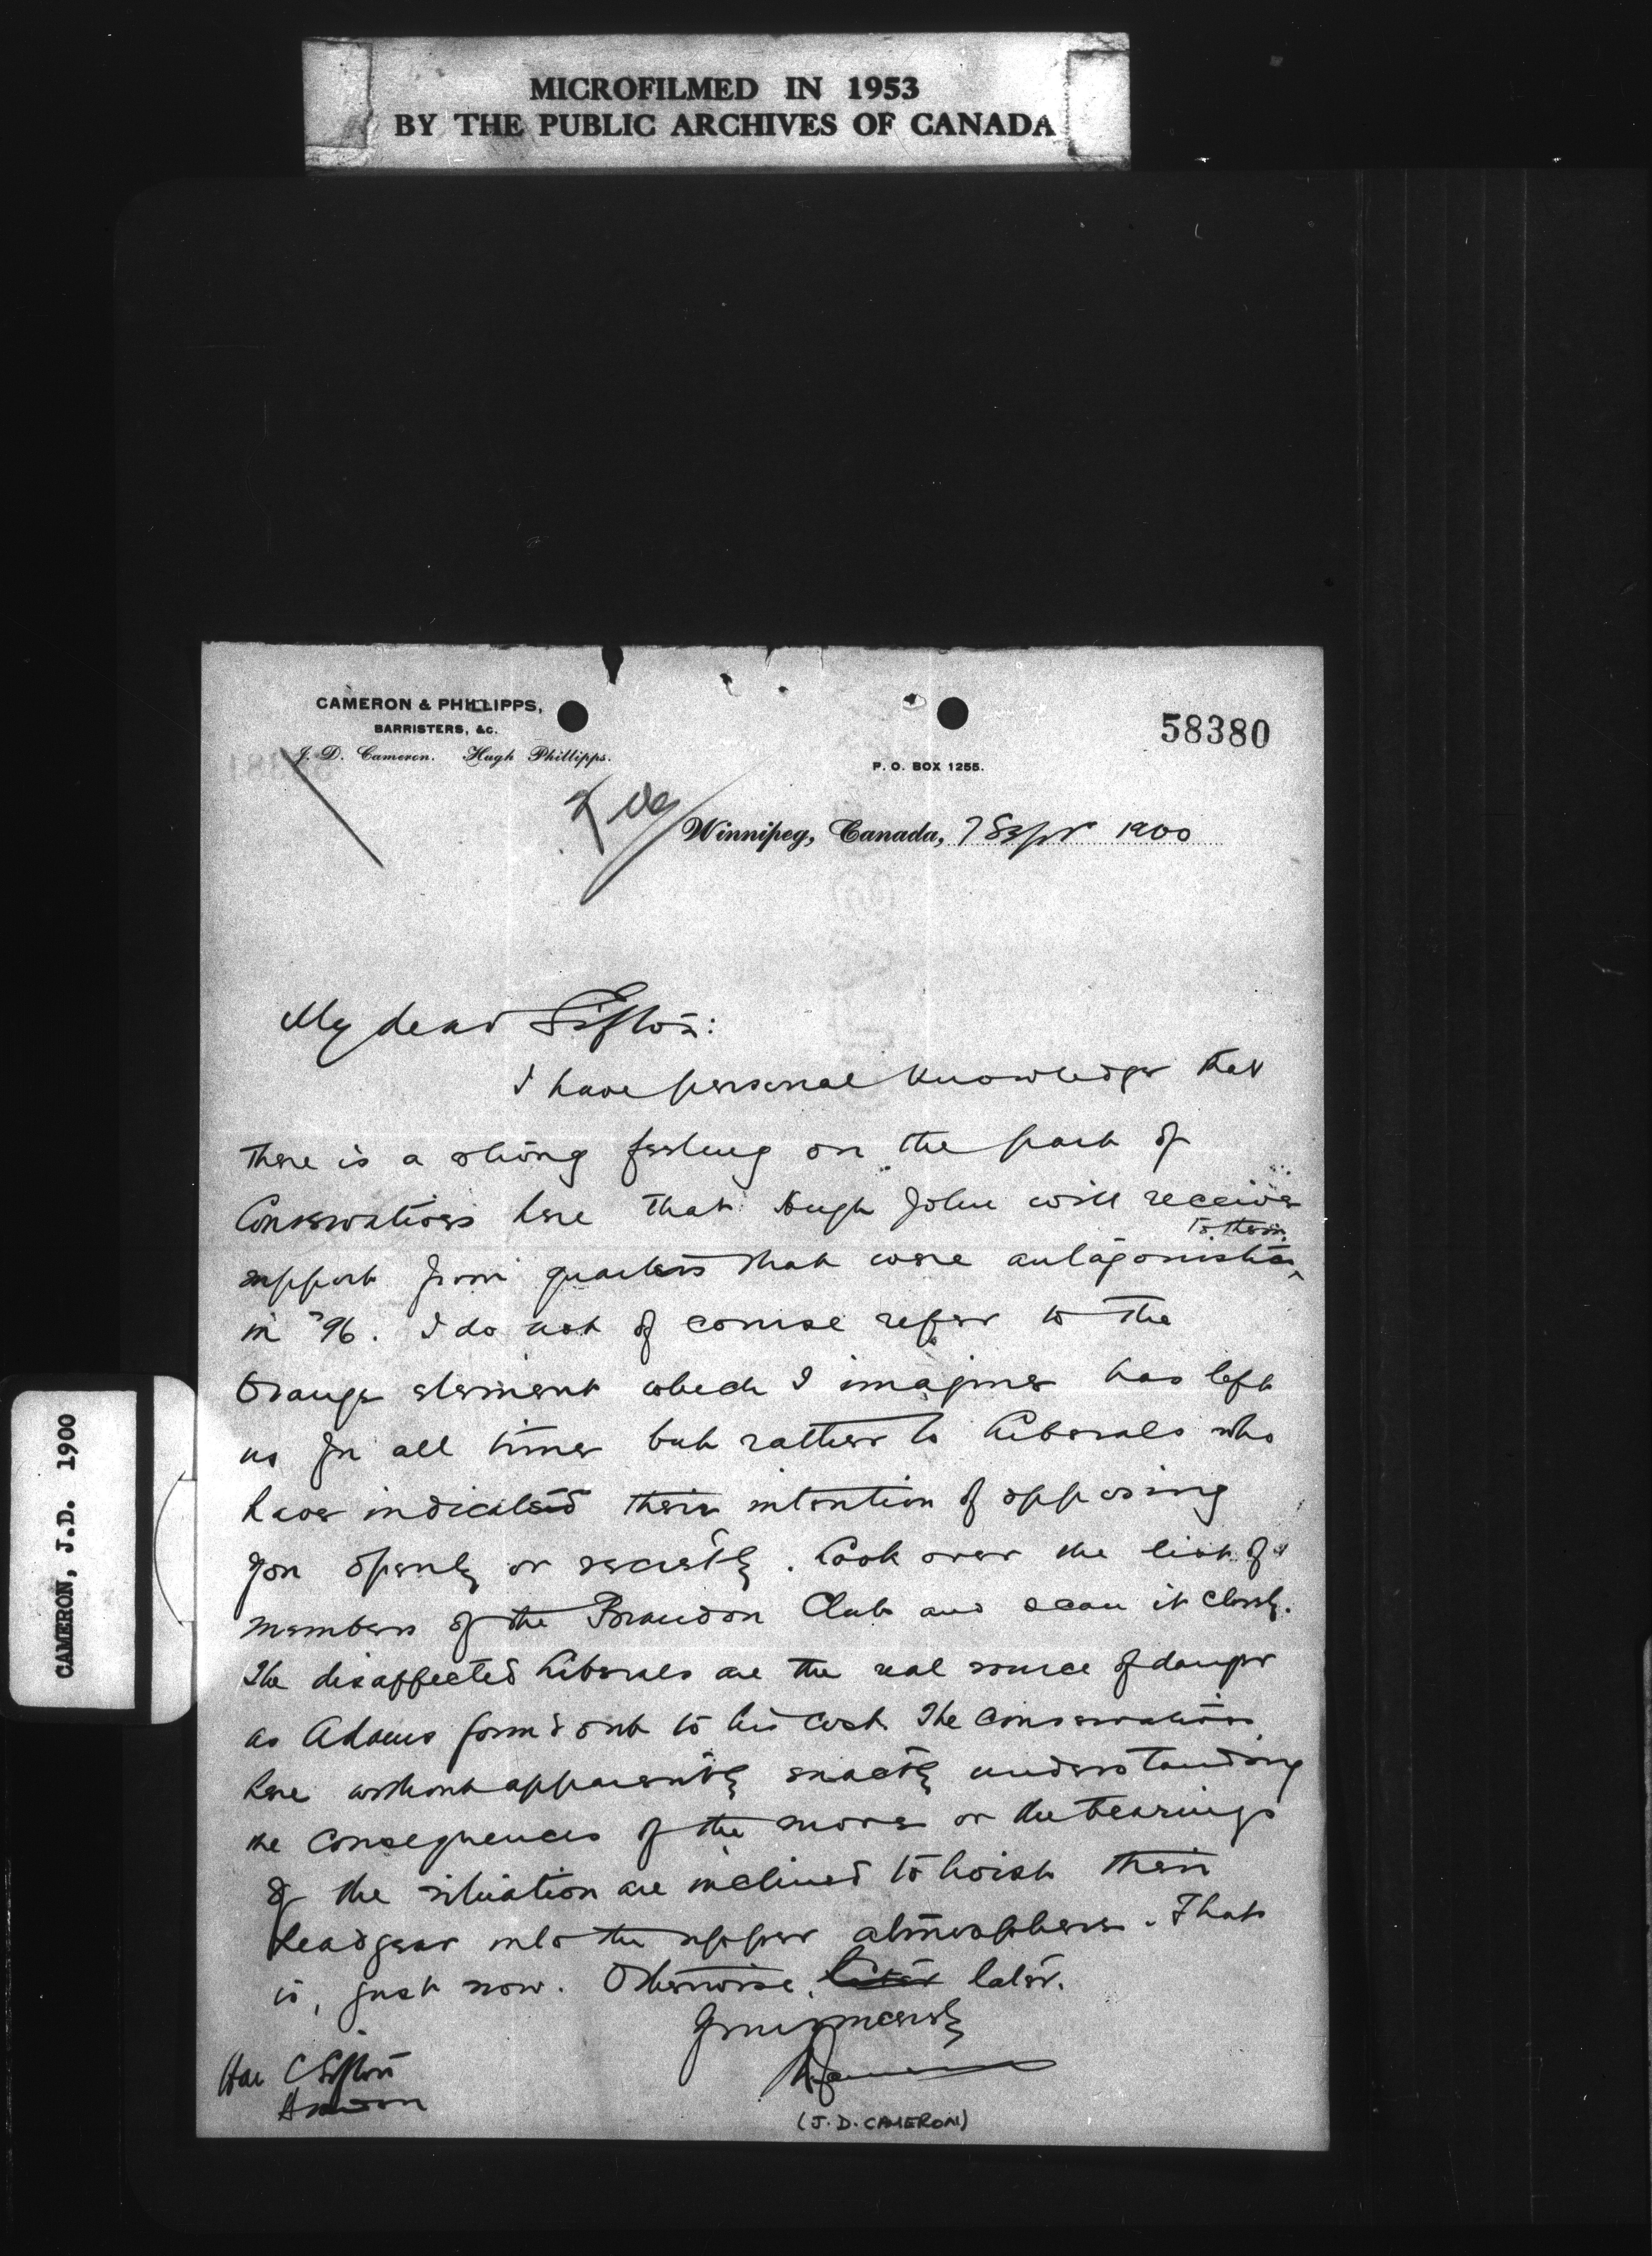 MICROFILMED IN 1953
BY THE PUBLIC ARCHIVES OF CANADA
CAMERON & PHILLIPPS,
BARRISTERS, &c.
J. D. Cameron. Hugh Phillipps.
P. O. BOX 1255.
58380
Winnipeg, Canada, 7 Sept 1900
My dear Sifton:
I have personal knowledge that
there is a strong feeling on the part of
Conservatives here that Hugh John will receive
to them
support from quarters that were antagonistic
in '96. I do not of course refer to the
Orange element which I imagine has left
us for all time but rather to Liberals who
have indicated their intention of opposing
you openly or secretly. Look over the list of
members of the Brandon Club and scan it closely.
The disaffected Liberals are the real source of danger
as Adams found out to his cost. The conservatives
here without apparently exactly understanding
the consequences of the move or the bearings
of the situation are inclined to hoist their
headgear into the upper atmosphere. That
is, just now. Otherwise, later.
Yours sincerely
JDCameron
(J. D. CAMERON)
Hon C Sifton
CAMERON, J.D. 1900